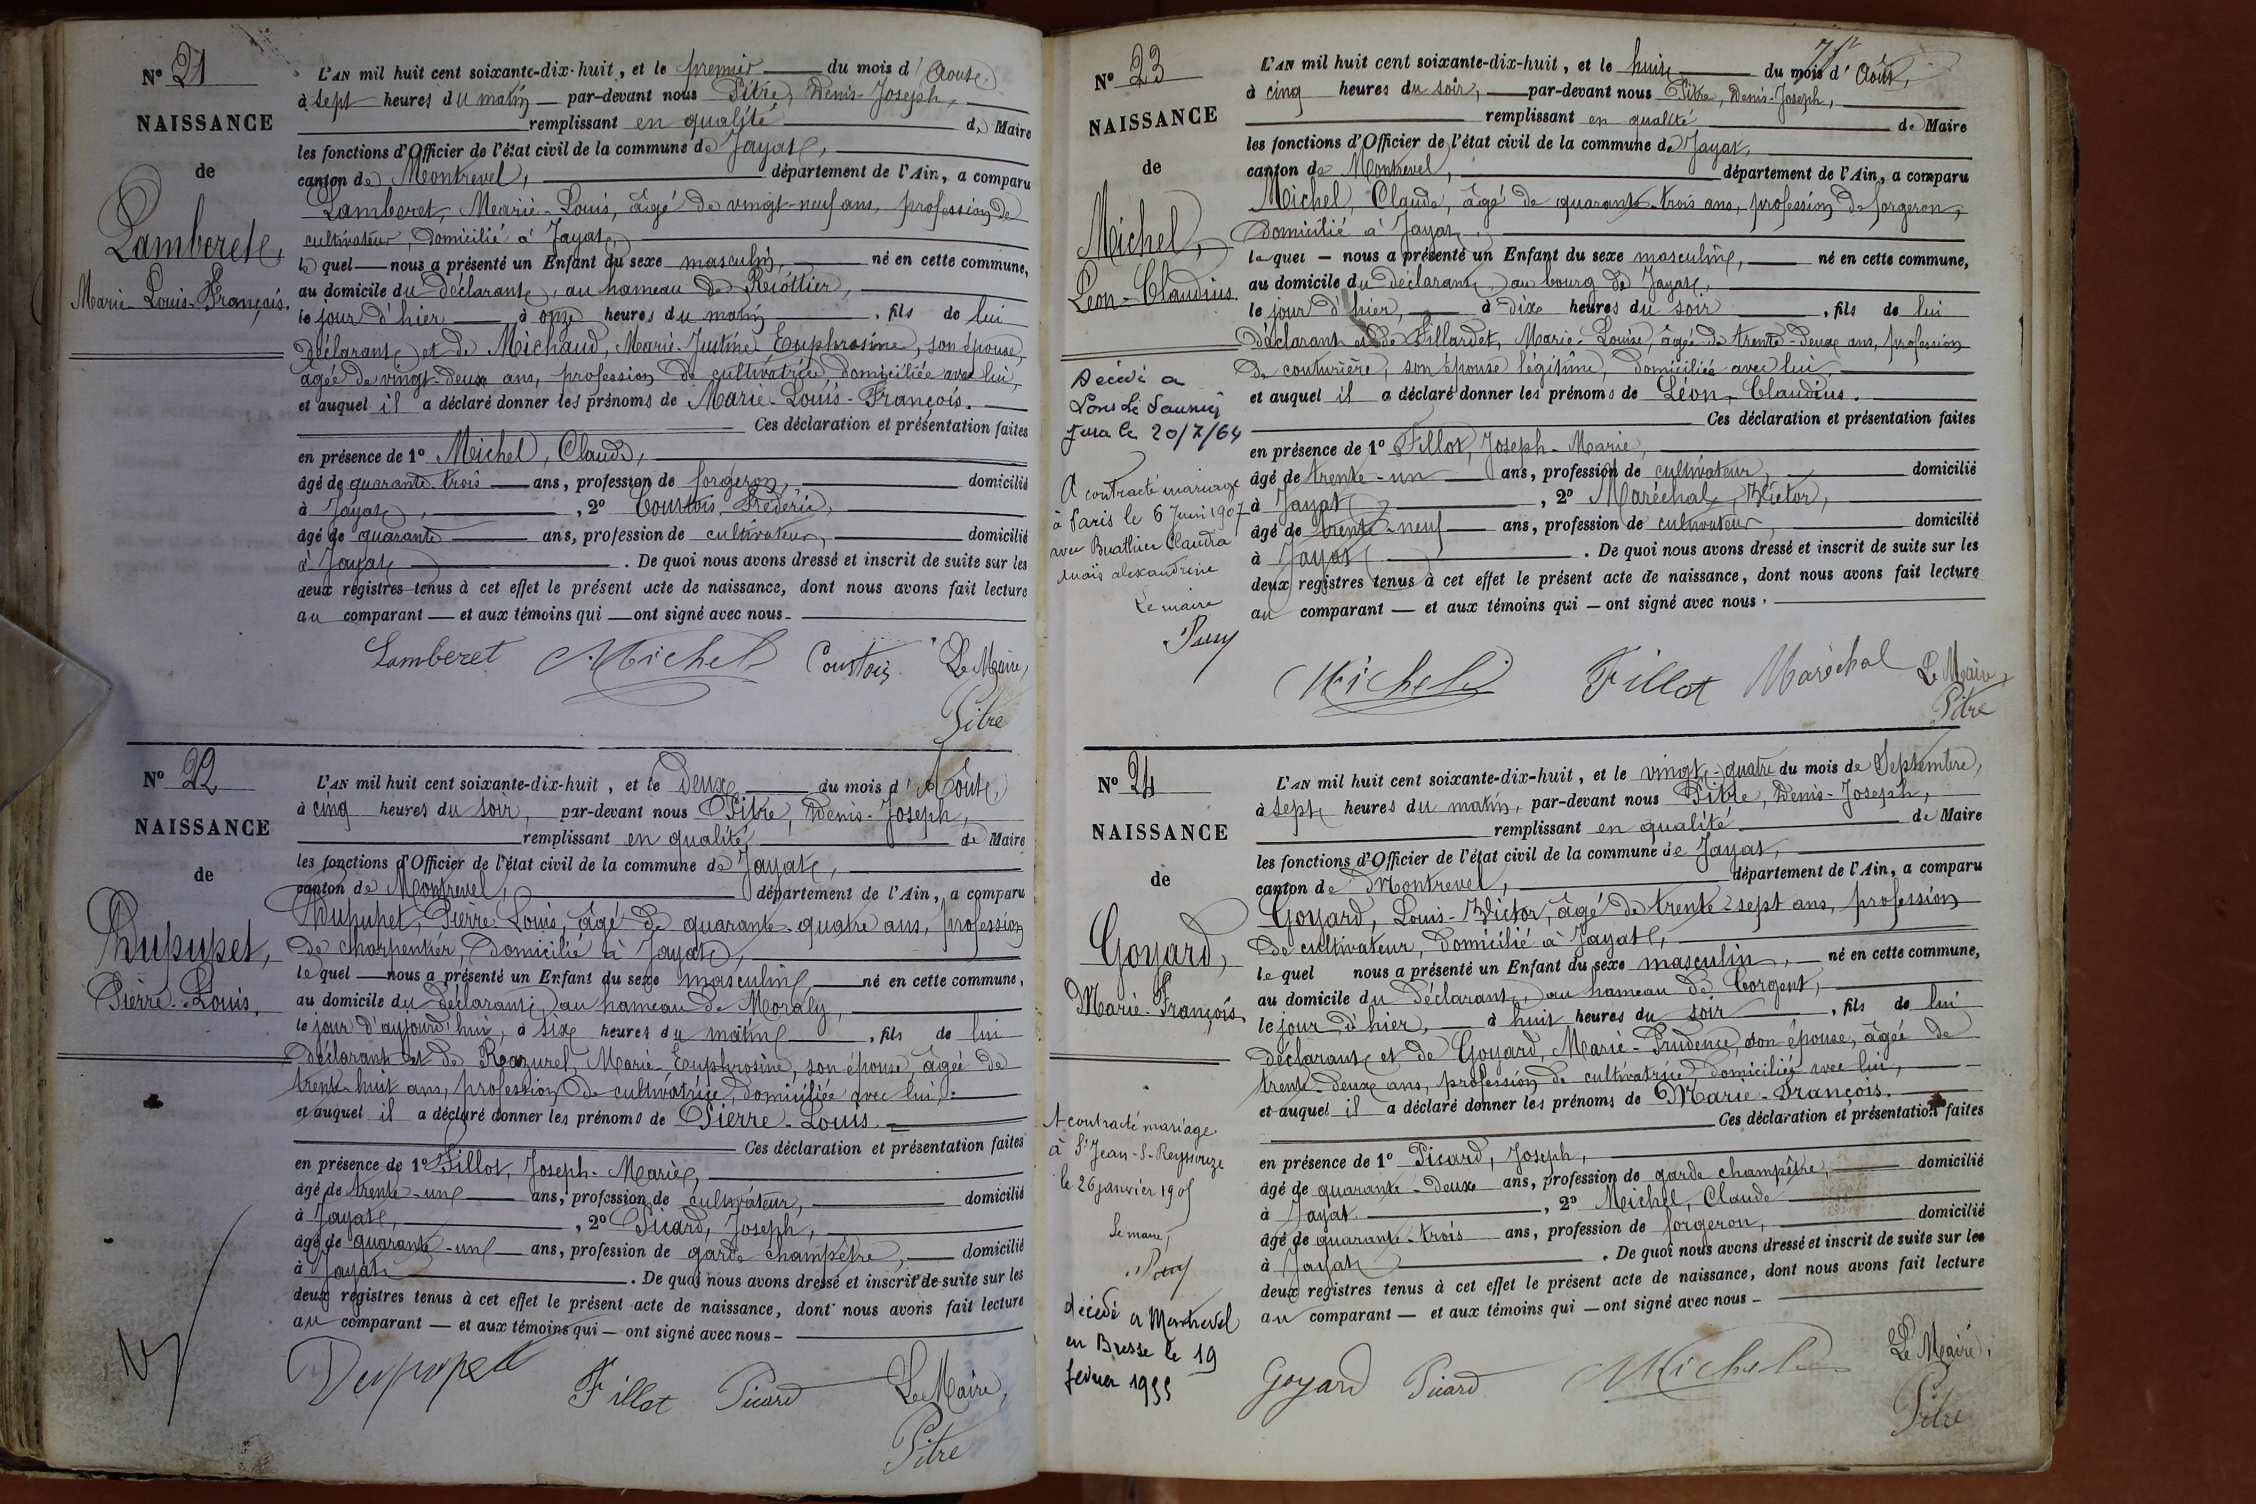 N° 21
NAISSANCE
de
Lamberet,
Marie-Louis-François.
L'AN mil huit cent soixante-dix-huit, et le premier du mois d'Août,
à sept heures du matin par-devant nous Pitre, Denis-Joseph,
remplissant en qualité de Maire
les fonctions d'Officier de l'état civil de la commune de Jayat,
canton de Montrevel, département de l'Ain, a comparu
Lamberet, Marie-Louis, âgé de vingt-neuf ans, profession de
cultivateur, domicilié à Jayat,
le quel nous a présenté un Enfant du sexe masculin, né en cette commune,
au domicile du déclarant, au hameau de
le jour d'hier à onze heures du matin, fils de lui
déclarant et de Michaud, Marie-Justine Euphrosine, son épouse,
âgée de vingt-deux ans, profession de cultivatrice, domiciliée avec lui,
et auquel il a déclaré donner les prénoms de Marie-Louis-François.
Ces déclaration et présentation faites
en présence de 1° Michel, Claude,
âgé de quarante-trois ans, profession de forgeron, domicilié
à Jayat, 2° Courtois, Frédéric,
âgé de quarante ans, profession de cultivateur, domicilié
à Jayat. De quoi nous avons dressé et inscrit de suite sur les
deux registres tenus à cet effet le présent acte de naissance, dont nous avons fait lecture
au comparant — et aux témoins qui — ont signé avec nous.
Lamberet Michel Courtois Le Maire,
Pitre
N° 22
NAISSANCE
de
Dupupet,
Pierre-Louis.
L'AN mil huit cent soixante-dix-huit, et le deux du mois d'Août,
à cinq heures du soir, par-devant nous Pitre, Denis-Joseph,
remplissant en qualité de Maire
les fonctions d'Officier de l'état civil de la commune de Jayat,
canton de Montrevel, département de l'Ain, a comparu
Dupupet, Pierre-Louis, âgé de quarante-quatre ans, profession
de charpentier, domicilié à Jayat,
le quel — nous a présenté un Enfant du sexe masculin né en cette commune,
au domicile du déclarant, au hameau de Moraly,
le jour d'aujourd'hui, à six heures du matin, fils de lui
déclarant et de Razurel, Marie-Euphrosine, son épouse, âgée de
trente-huit ans, profession de cultivatrice, domiciliée avec lui,
et auquel il a déclaré donner les prénoms de Pierre-Louis.
Ces déclaration et présentation faites
en présence de 1° Fillot, Joseph-Marie,
âgé de trente-un ans, profession de cultivateur, domicilié
à Jayat, 2° Picard, Joseph,
âgé de quarante-un ans, profession de garde champêtre, domicilié
à Jayat. De quoi nous avons dressé et inscrit de suite sur les
deux registres tenus à cet effet le présent acte de naissance, dont nous avons fait lecture
au comparant — et aux témoins qui — ont signé avec nous —
Dupupet Fillot Picard Le Maire,
Pitre
N° 23
NAISSANCE
de
Michel,
Léon-Claudius.
Décédé a
Lons le Saunier
Jura le 20/7/64
A contracté mariage
à Paris le 6 Juin 1907
avec Buathier Claudia
Anaïs alexandrine
Le maire
L'AN mil huit cent soixante-dix-huit, et le huit du mois d'Août,
à cinq heures du soir, par-devant nous Pitre, Denis-Joseph,
remplissant en qualité de Maire
les fonctions d'Officier de l'état civil de la commune de Jayat,
canton de Montrevel, département de l'Ain, a comparu
Michel, Claude, âgé de quarante-trois ans, profession de forgeron,
domicilié à Jayat,
le quel — nous a présenté un Enfant du sexe masculin, né en cette commune,
au domicile du déclarant, au bourg de Jayat,
le jour d'hier, à dix heures du soir, fils de lui
déclarant et de Fillardet, Marie-Louise, âgée de trente-deux ans, profession
de couturière, son épouse légitime, domiciliée avec lui,
et auquel il a déclaré donner les prénoms de Léon-Claudius.
Ces déclaration et présentation faites
en présence de 1° Fillot, Joseph-Marie,
âgé de trente-un ans, profession de cultivateur, domicilié
à Jayat, 2° Maréchal, Victor,
âgé de trente-neuf ans, profession de cultivateur, domicilié
à Jayat. De quoi nous avons dressé et inscrit de suite sur les
deux registres tenus à cet effet le présent acte de naissance, dont nous avons fait lecture
au comparant — et aux témoins qui — ont signé avec nous.
Michel Fillot Maréchal Le Maire,
Pitre
N° 24
NAISSANCE
de
Goyard,
Marie-François
A contracté mariage
à St Jean-S-Reyssouze
le 26 janvier 1905
Le maire,
décédé a Montrevel
en Bresse le 19
fevrier 1955
L'AN mil huit cent soixante-dix-huit, et le vingt-quatre du mois de Septembre,
à sept heures du matin, par-devant nous Pitre, Denis-Joseph,
remplissant en qualité de Maire
les fonctions d'Officier de l'état civil de la commune de Jayat,
canton de Montrevel, département de l'Ain, a comparu
Goyard, Louis-Victor, âgé de trente-sept ans, profession
de cultivateur, domicilié à Jayat,
le quel nous a présenté un Enfant du sexe masculin, né en cette commune,
au domicile du déclarant, au hameau de Corgent,
le jour d'hier, à huit heures du soir, fils de lui
déclarant et de Goyard, Marie-Prudence, son épouse, âgée de
trente-deux ans, profession de cultivatrice, domiciliée avec lui,
et auquel il a déclaré donner les prénoms de Marie-François.
Ces déclaration et présentation faites
en présence de 1° Picard, Joseph,
âgé de quarante-deux ans, profession de garde champêtre, domicilié
à Jayat, 2° Michel, Claude
âgé de quarante-trois ans, profession de forgeron, domicilié
à Jayat. De quoi nous avons dressé et inscrit de suite sur les
deux registres tenus à cet effet le présent acte de naissance, dont nous avons fait lecture
au comparant — et aux témoins qui — ont signé avec nous —
Goyard Picard Michel Le Maire,
Pitre